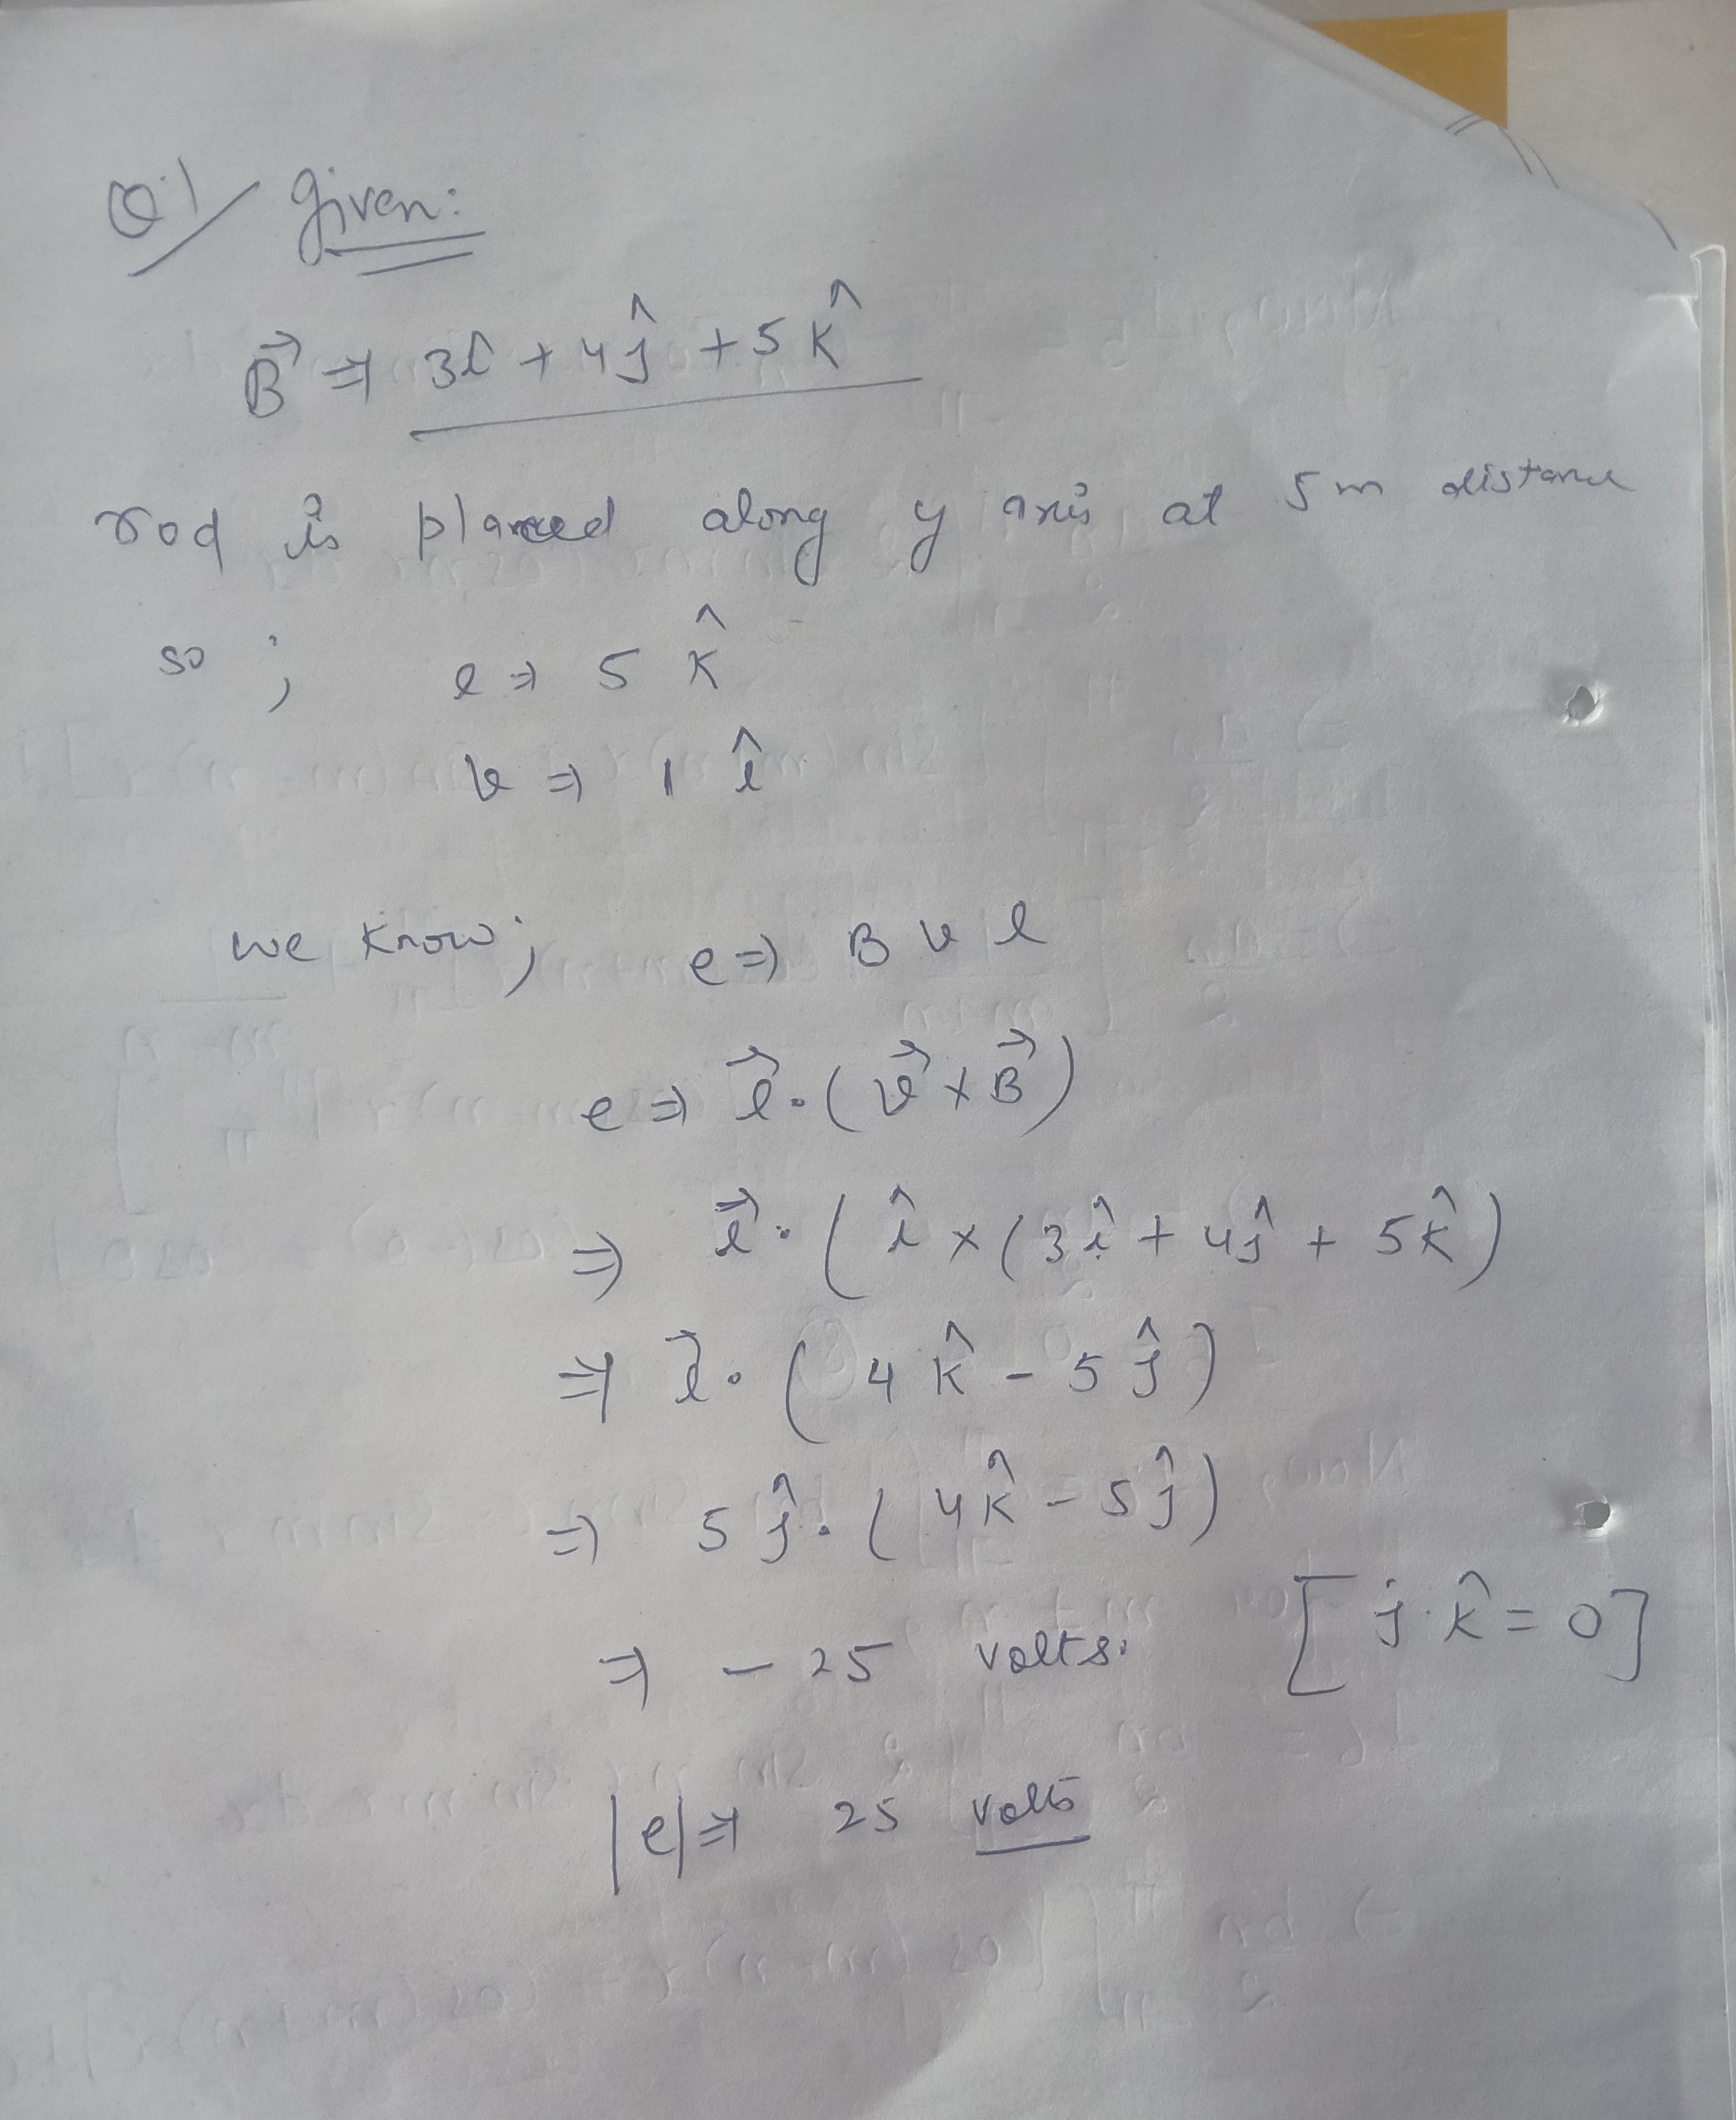 Q.1 Given:
B⃗ ⇒ 3î + 4ĵ + 5k̂
rod is placed along y axis at 5m distance
so ; l ⇒ 5 k̂
v ⇒ 1 î
we know; e ⇒ B v l
e ⇒ l⃗ . (v⃗ × B⃗)
⇒ l⃗ . ( î × (3î + 4ĵ + 5k̂)
⇒ l⃗ . ( 4k̂ - 5ĵ )
⇒ 5ĵ . ( 4k̂ - 5ĵ )
⇒ - 25 volts. [ j . k̂ = 0 ]
|e| ⇒ 25 volts